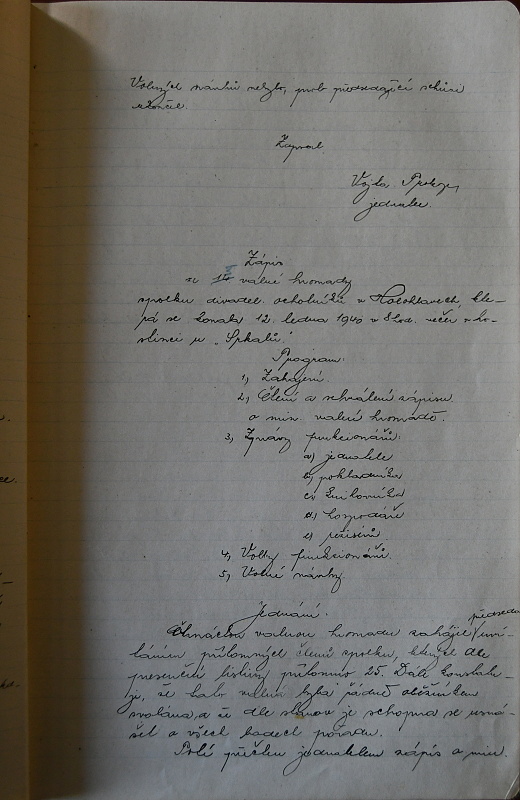 Volných návrhů nebylo, proto předsedající schůzi
skončil.
Zapsal
Vojta
jednatel.
Zápis
o valné hromady
spolku divadel. ochotníků v Holohlavech, kte-
rá se konala 12. ledna 1940 v 8 hod. večer v ho-
stinci u „Spkalů".
Program:
1, Zahájení.
2, Čtení a schválení zápisu
o min. valné hromadě.
3, Zprávy funkcionářů:
a, jednatele
b, pokladníka
c, knihovníka
d, hospodáře
e, režisérů
4, Volby funkcionářů.
5, Volné návrhy
Jednání.
valnou hromadu zahájil předseda uví-
táním přítomných členů spolku, kterých dle
presenční listiny přítomno 25. Dále konstatu-
je, že valná byla řádně oběžníkem
svolána, a že dle stanov je schopna se usná-
šet o všech bodech pořadu.
Poté přečten jednatelem zápis o min.